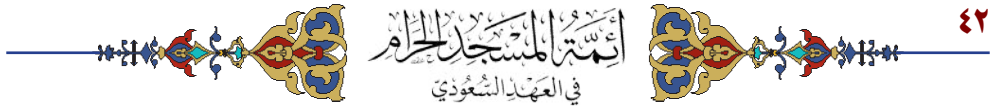 ٤٢
أَئِمَّةُ المَسْجِدِ الحَرَامِ
فِي العَهْدِ السُّعُودِيّ